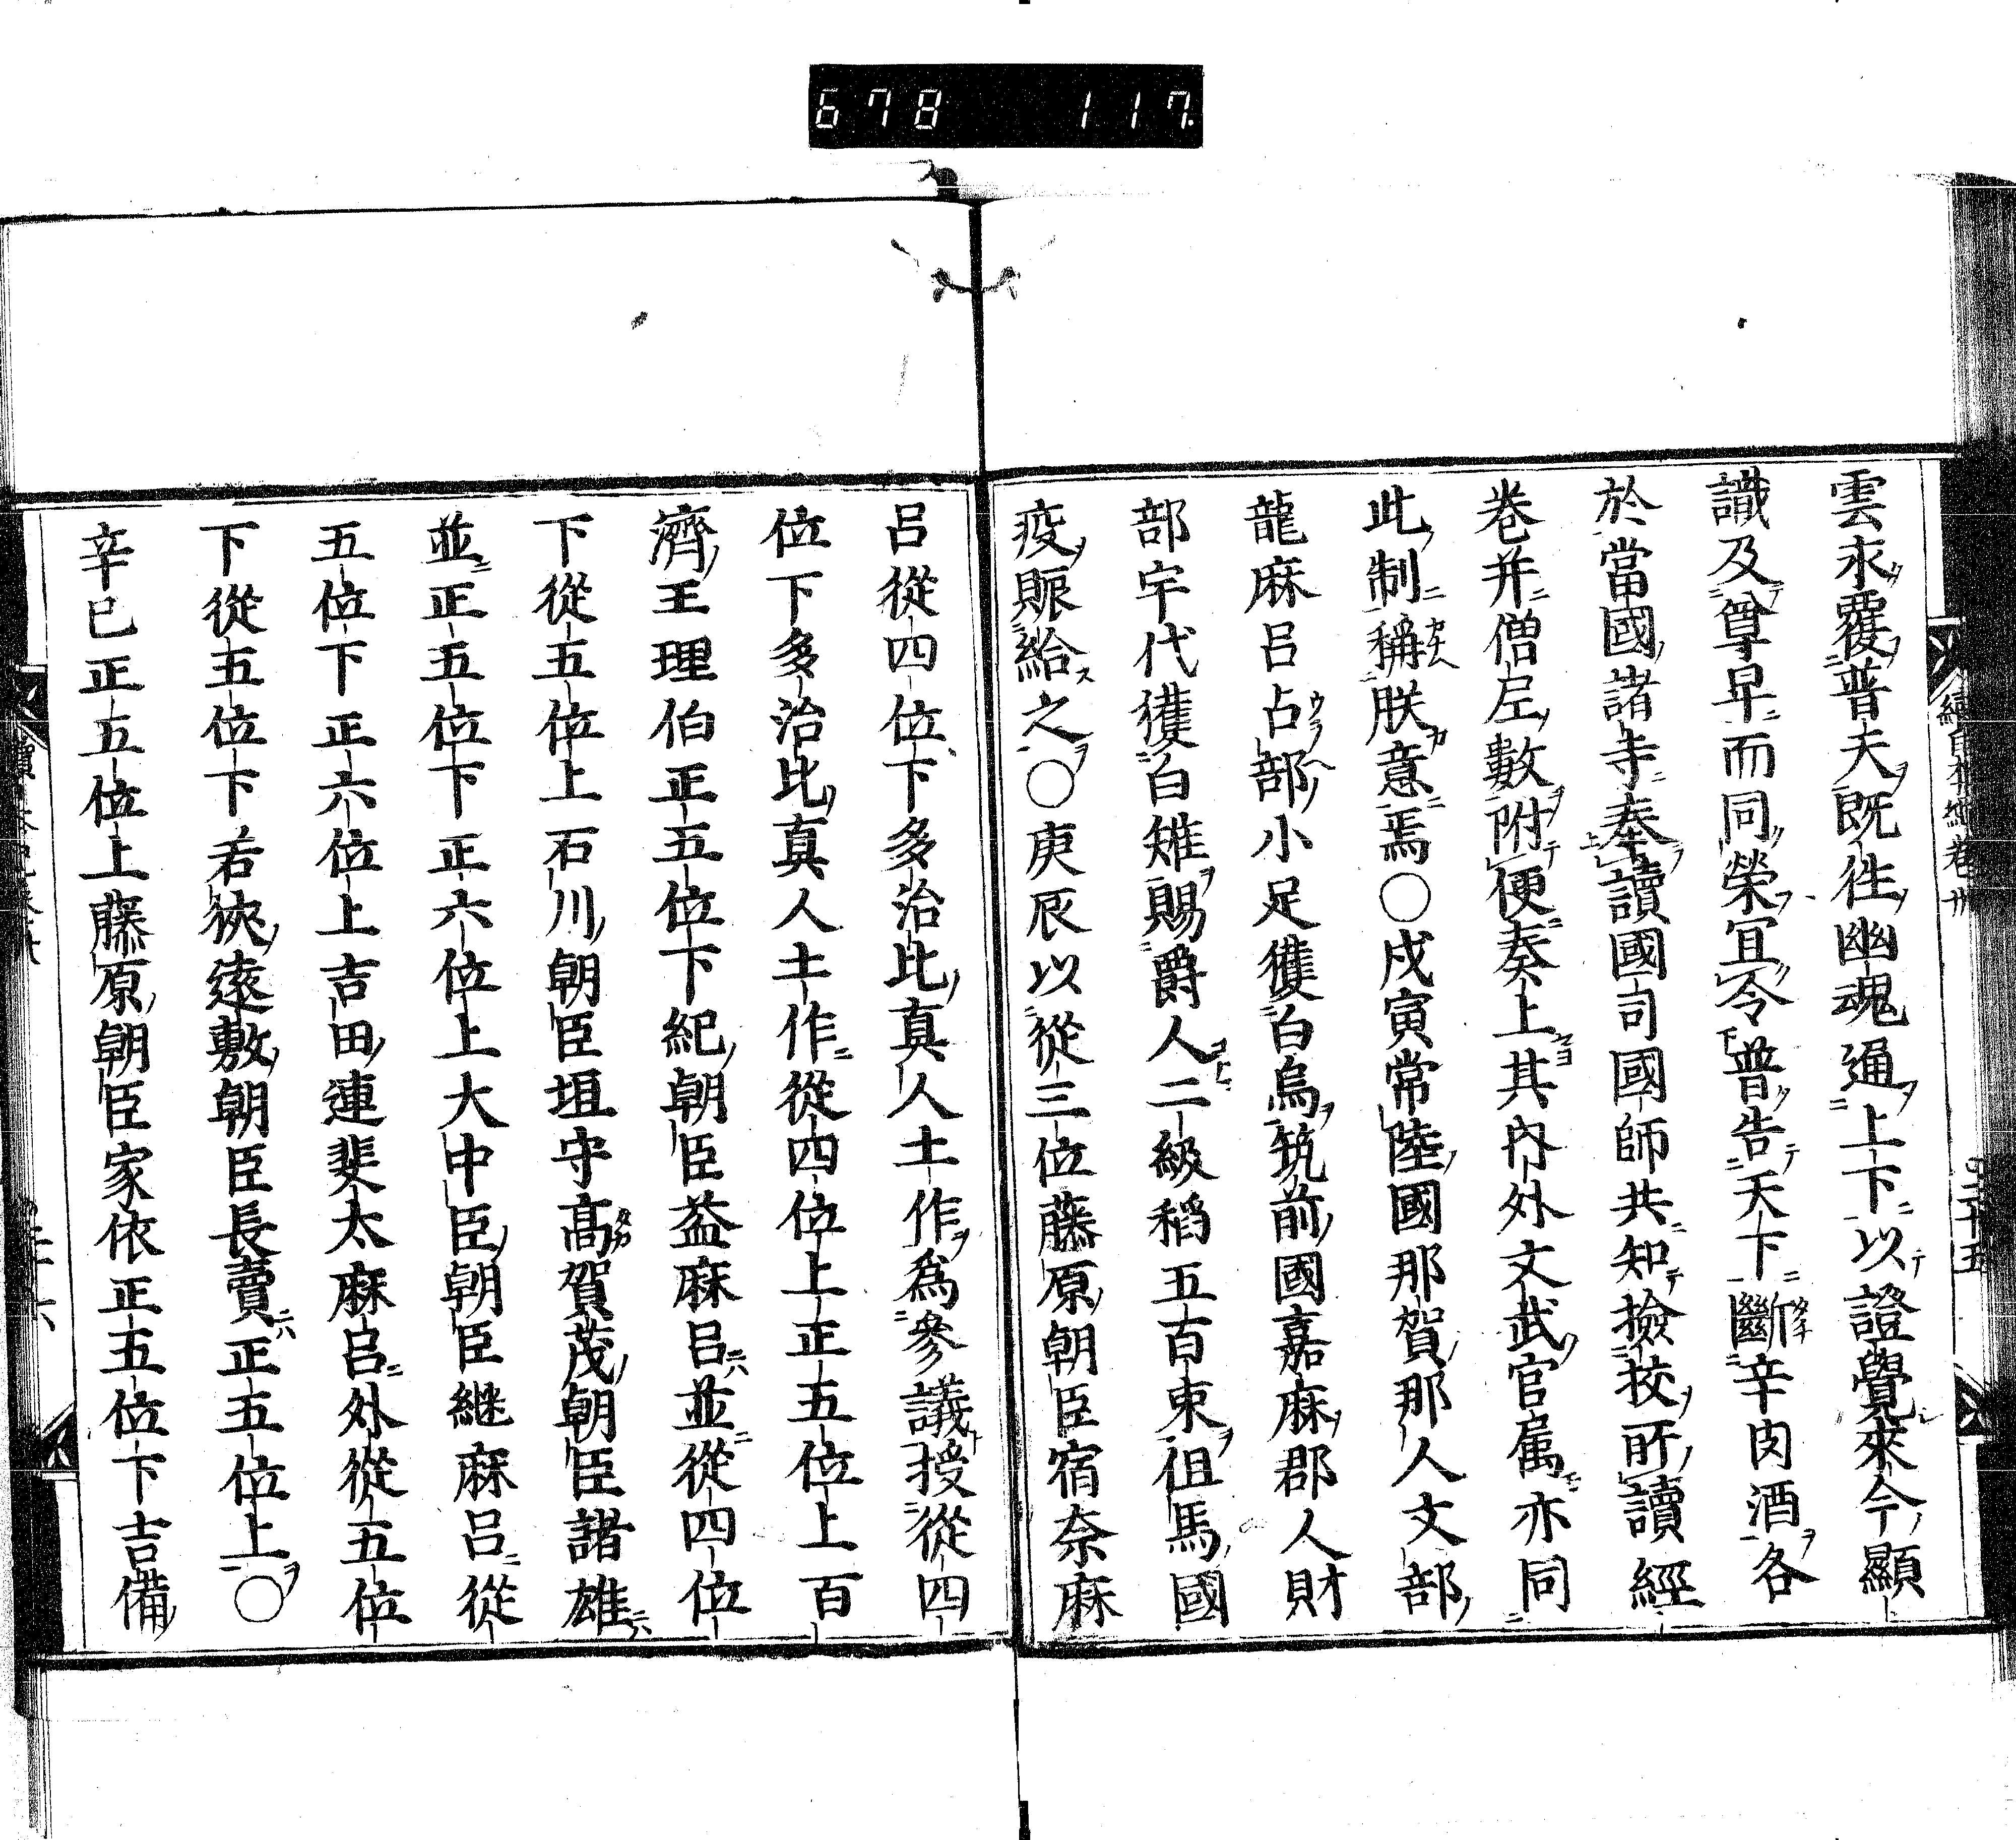 678 117.
雲永覆普天既往幽魂通上下以證覺來今顯
識及尊早而同榮冝令普告天下斷辛肉酒各
於當國諸寺奉讀國司國師共知撿挍所讀經
卷并僧尼數附便奏上其內外文武官属亦同
此制稱朕意焉○戊寅常陸國那賀那人文部
龍麻呂占部小足獲白烏筑前國嘉麻郡人財
部宇代獲白雉賜爵人二級稻五百束徂馬國
疫賑給之○庚辰以從三位藤原朝臣宿奈麻
呂從四位下多治比真人土作爲參議授從四
位下多治比真人土作從四位上正五位上百
濟王理伯正五位下紀朝臣益麻呂並從四位
下從五位上石川朝臣垣守髙賀茂朝臣諸雄
並正五位下正六位上大中臣朝臣継麻呂從
五位下正六位上吉田連斐太麻呂外從五位
下從五位下若狹遠敷朝臣長賣正五位上○
辛巳正五位上藤原朝臣家依正五位下吉備